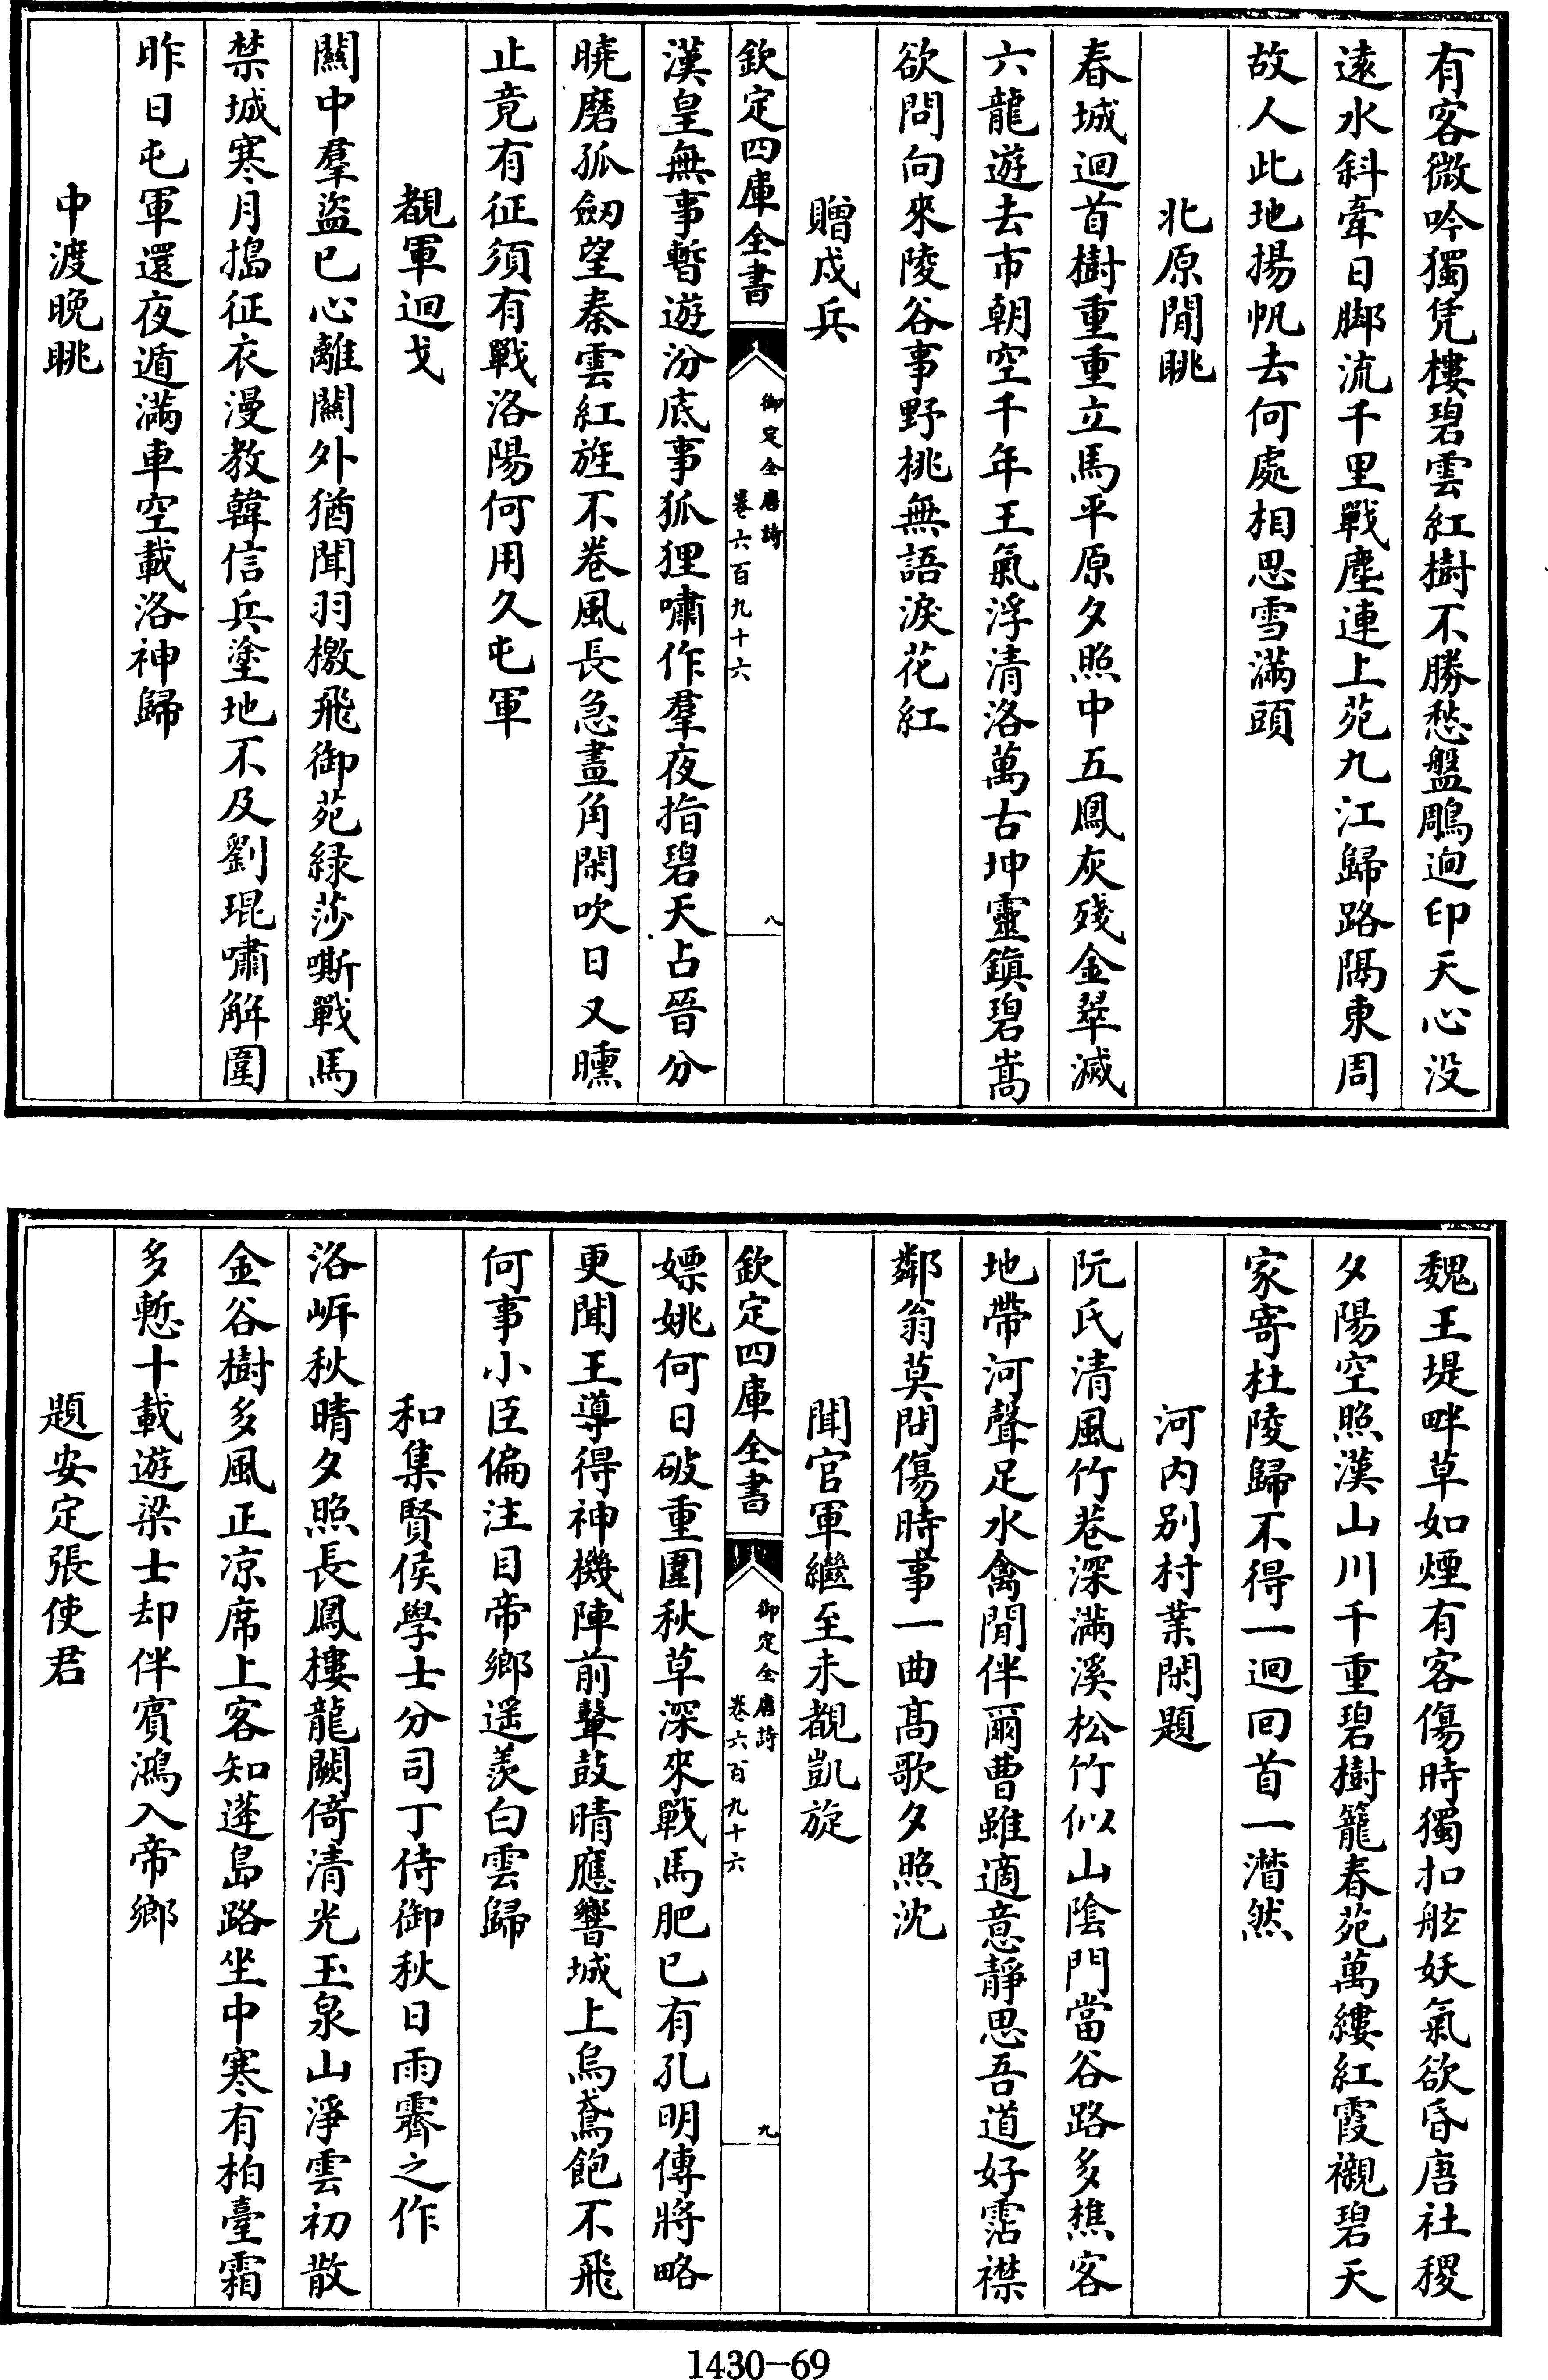 有客微吟獨凭樓碧雲紅樹不勝愁盤鵰迥印天心没
遠水斜牽日脚流千里戰塵連上苑九江歸路隔東周
故人此地揚帆去何處相思雪滿頭
北原閒眺
春城迴首樹重重立馬平原夕照中五鳳灰殘金翠滅
六龍遊去市朝空千年王氣浮清洛萬古坤靈鎮碧嵩
欲問向來陵谷事野桃無語淚花紅
贈戍兵
欽定四庫全書
御定全唐詩
卷六百九十六
八
漢皇無事暫遊汾底事狐狸嘯作羣夜指碧天占晉分
曉磨孤劒望秦雲紅旌不卷風長急畫角閑吹日又曛
止竟有征須有戰洛陽何用久屯軍
覩軍迴戈
關中羣盜已心離關外猶聞羽檄飛御苑緑莎嘶戰馬
禁城寒月搗征衣漫教韓信兵塗地不及劉琨嘯解圍
昨日屯軍還夜遁滿車空載洛神歸
中渡晚眺
魏王堤畔草如煙有客傷時獨扣舷妖氣欲昏唐社稷
夕陽空照漢山川千重碧樹籠春苑萬縷紅霞襯碧天
家寄杜陵歸不得一迴回首一潸然
河内别村業閑題
阮氏清風竹巷深滿溪松竹似山陰門當谷路多樵客
地帶河聲足水禽閒伴爾曹雖適意靜思吾道好霑襟
鄰翁莫問傷時事一曲高歌夕照沈
聞官軍繼至未覩凱旋
欽定四庫全書
御定全唐詩
卷六百九十六
九
嫖姚何日破重圍秋草深來戰馬肥已有孔明傳將略
更聞王導得神機陣前鼙鼓晴應響城上烏鳶飽不飛
何事小臣偏注目帝鄉遥羨白雲歸
和集賢侯學士分司丁侍御秋日雨霽之作
洛岸秋晴夕照長鳳樓龍闕倚清光玉泉山淨雲初散
金谷樹多風正凉席上客知蓬島路坐中寒有柏臺霜
多慙十載遊梁士却伴賓鴻入帝鄉
題安定張使君
1430-69